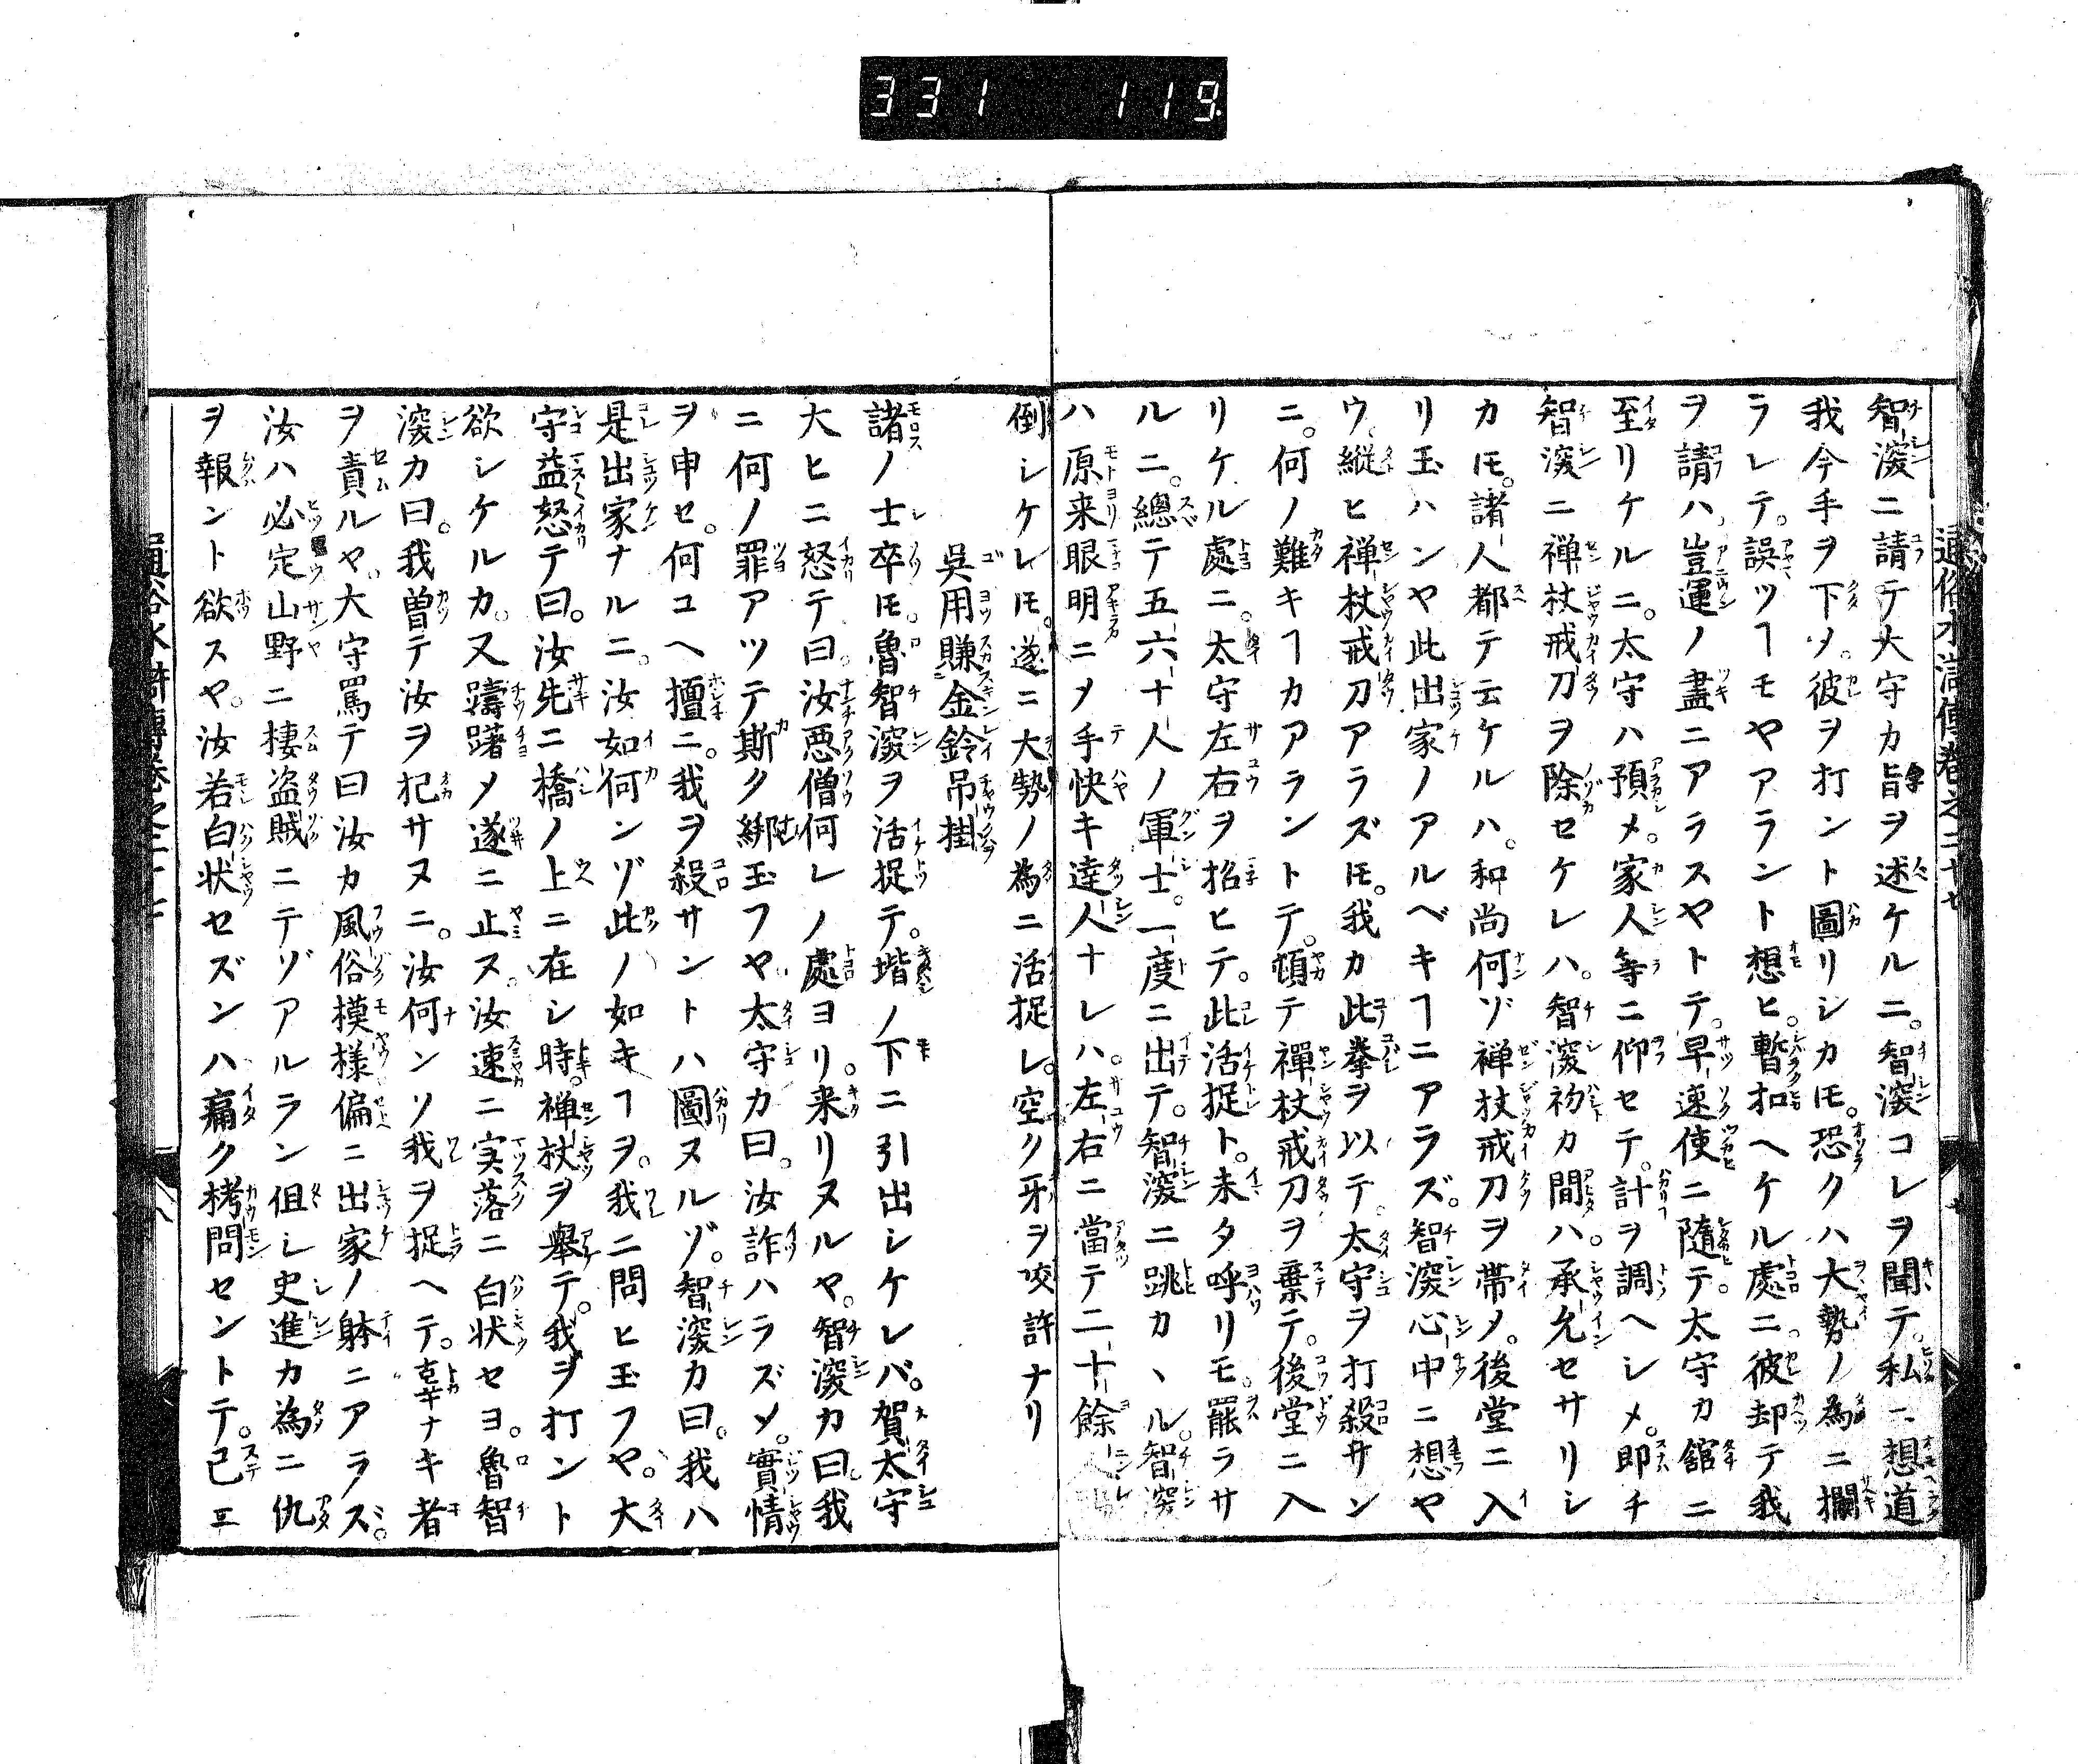 331 119
通俗水滸傳卷之三十七
智深ニ請テ大守カ旨ヲ述ケルニ。智深コレヲ聞テ。私ニ想道
我今手ヲ下ソ。彼ヲ打ント圖リシカ𪜈。恐クハ大勢ノ為ニ攔
ラレテ。誤ツヿモヤアラント想ヒ。暫扣ヘケル處ニ。彼却テ我
ヲ請ハ、豈運ノ盡ニアラスヤトテ。早速使ニ隨テ。太守カ舘ニ
至リケルニ。太守ハ預メ。家人等ニ仰セテ。計ヲ調ヘシメ。即チ
智深ニ禅杖戒刀ヲ除セケレハ。智深初カ間ハ。承允セサリシ
カ𪜈。諸人都テ云ケルハ。和尚何ゾ禅杖戒刀ヲ帯メ。後堂ニ入
リ玉ハンヤ此出家ノアルベキヿニアラズ。智深心中ニ想ヤ
ウ。縱ヒ禅杖戒刀アラズ𪜈。我カ此拳ヲ以テ。太守ヲ打殺サン
ニ。何ノ難キヿカアラントテ。頓テ禪杖戒刀ヲ棄テ。後堂ニ入
リケル處ニ。太守左右ヲ招ヒテ。此活捉ト。未タ呼リモ。罷ラサ
ルニ。總テ五六十人ノ軍士。一度ニ出テ。智深ニ跳カヽル。智深
ハ原来眼明ニメ手快キ達人ナレハ。左右ニ當テ二十餘
倒シケレ𪜈。遂ニ大勢ノ為ニ活捉レ。空ク牙ヲ咬許ナリ
吳用賺金鈴吊掛
諸ノ士卒𪜈。魯智深ヲ活捉テ。堦ノ下ニ引出シケレバ。賀太守
大ヒニ怒テ曰。汝悪僧何レノ處ヨリ。来リヌルヤ。智深カ曰我
ニ何ノ罪アツテ斯ク綁玉フヤ。太守カ曰。汝詐ハラズメ。實情
ヲ申セ。何ユヘ擅ニ。我ヲ殺サントハ圖ヌルゾ。智深カ曰。我ハ
是出家ナルニ。汝如何ンゾ此ノ如キヿヲ。我ニ問ヒ玉フヤ。大
守益怒テ曰。汝先ニ橋ノ上ニ在シ時。禅杖ヲ舉テ。我ヲ打ント
欲シケルカ。又躊躇メ遂ニ止ヌ。汝速ニ実落ニ白状セヨ。魯智
深カ曰。我曽テ汝ヲ犯サヌニ。汝何ンソ我ヲ捉ヘテ。辜ナキ者
ヲ責ルヤ。大守罵テ曰汝カ風俗模様偏ニ出家ノ躰ニアラズ。
汝ハ必定山野ニ棲盗賊ニテゾアルラン但シ史進カ為ニ仇
ヲ報ント欲スヤ。汝若白状セズンハ痛ク栲問セントテ。已ニ
通俗水滸傳卷之三十七